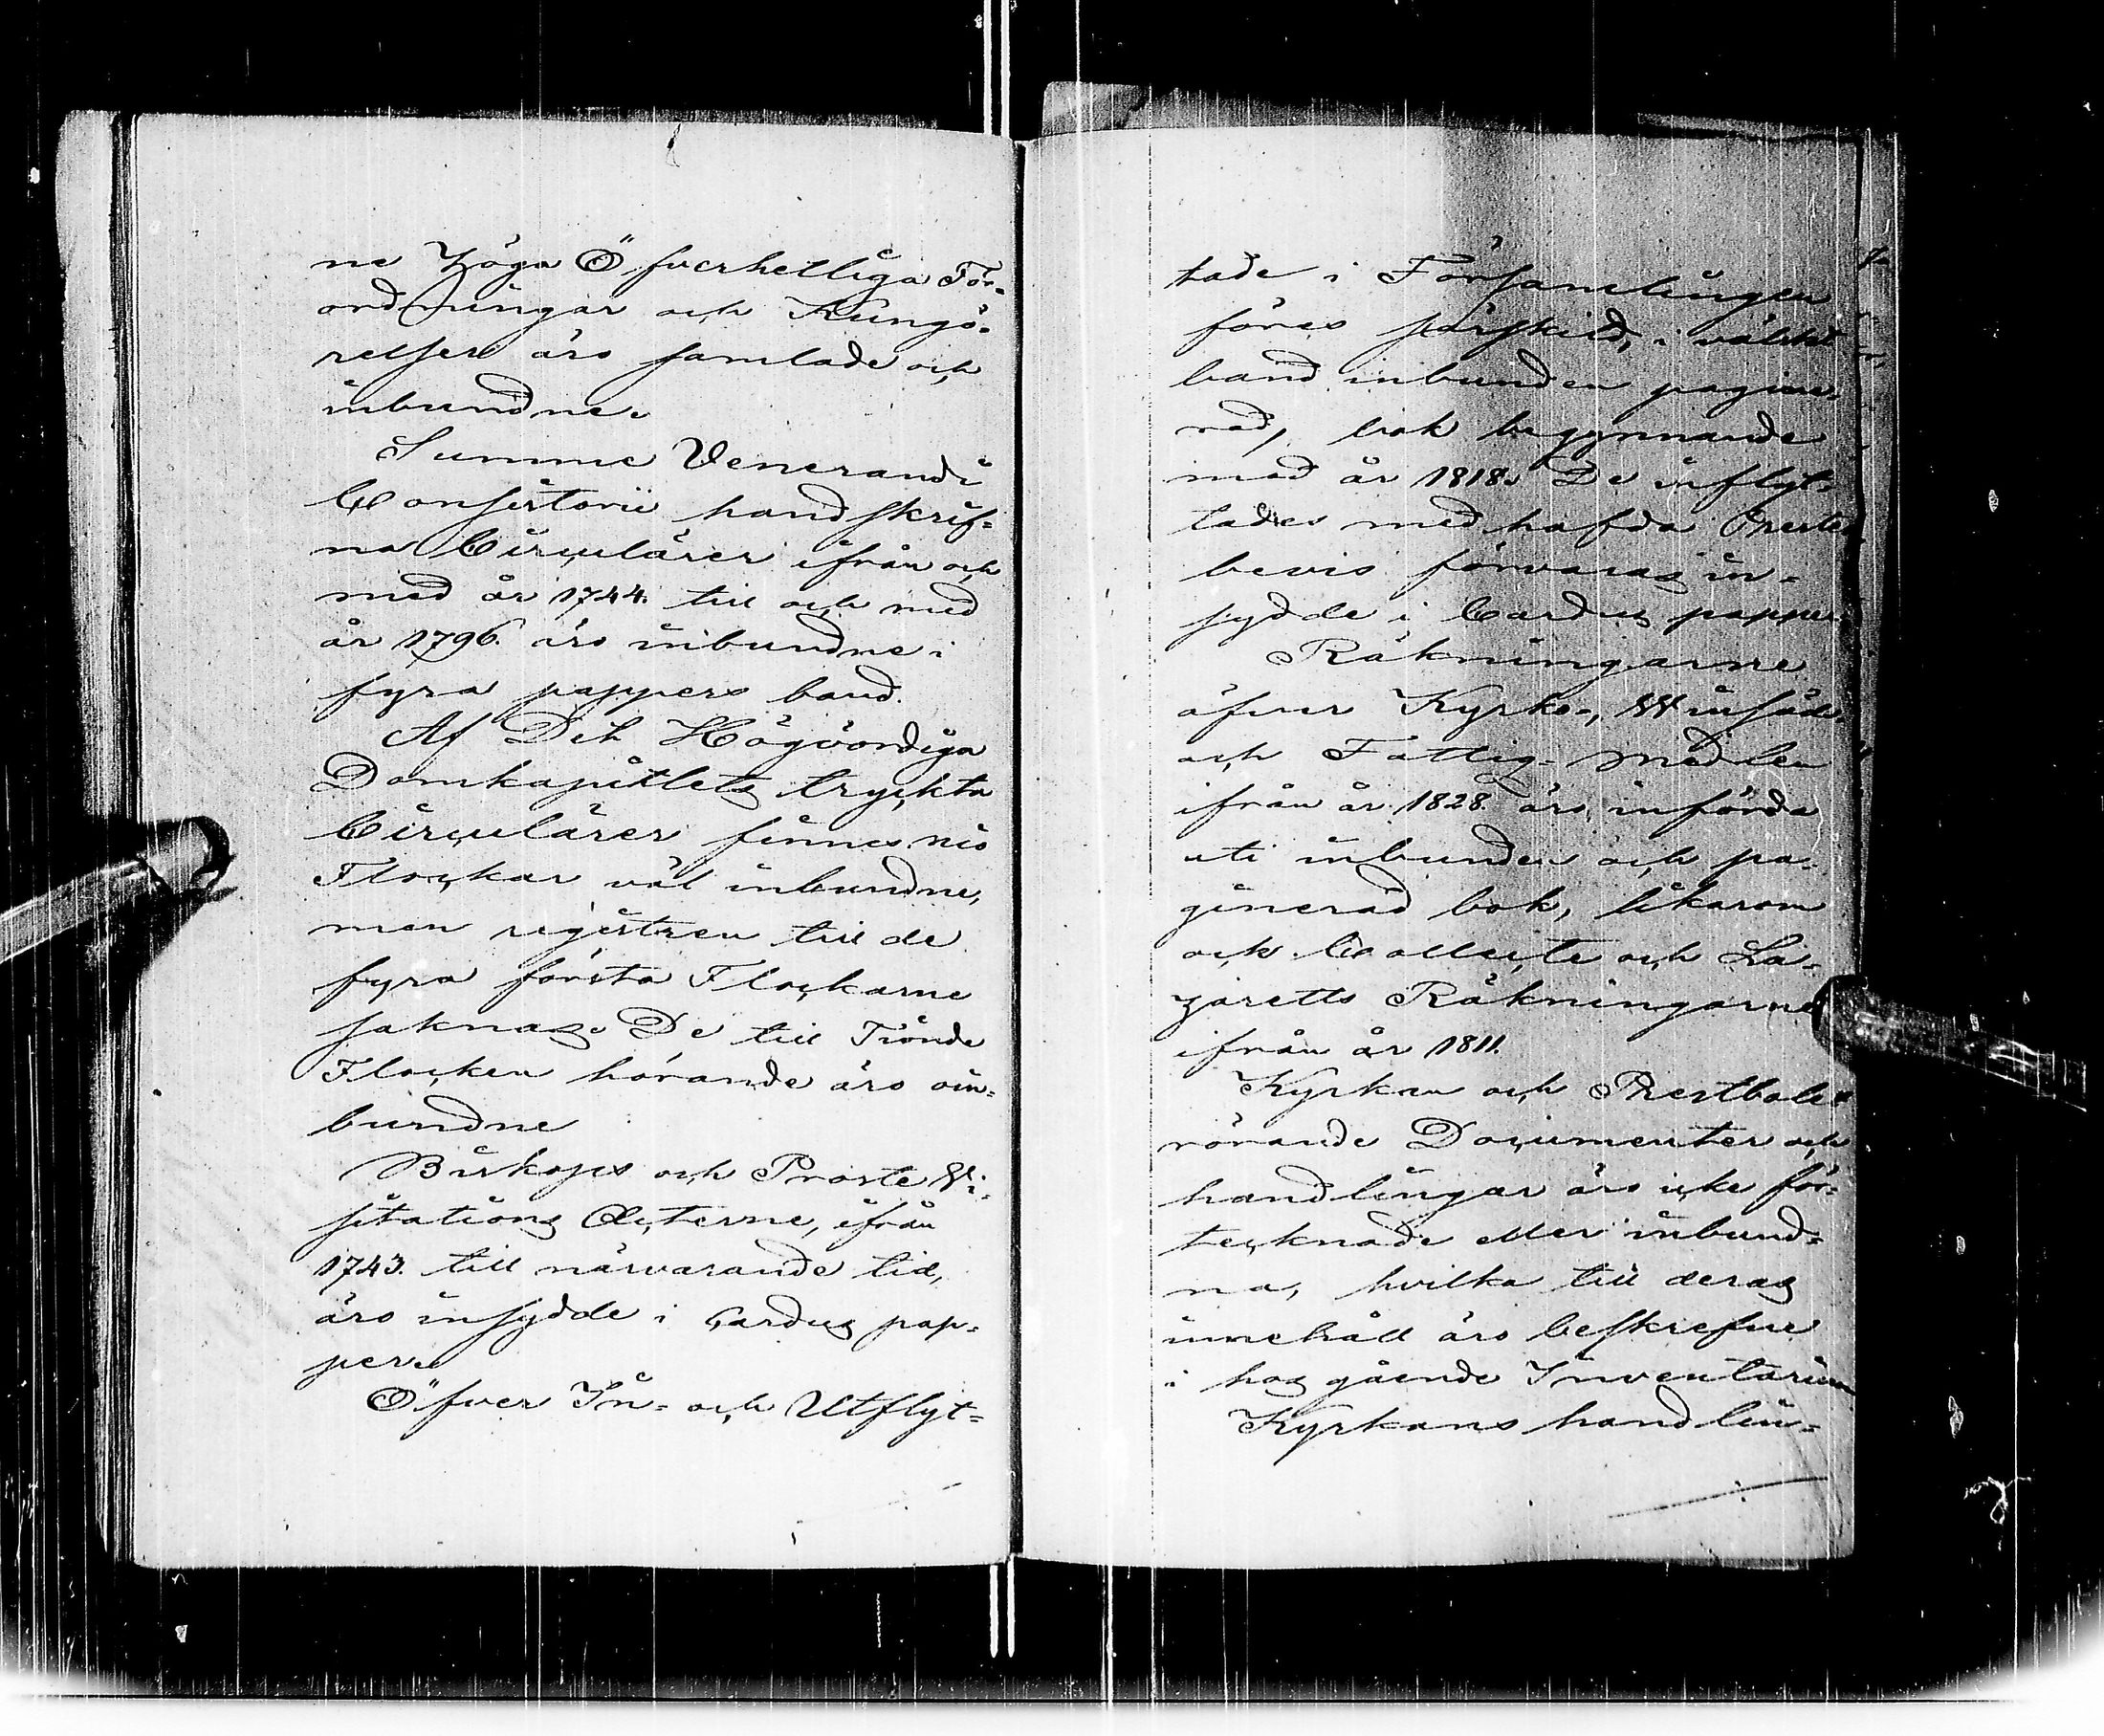 ne höga Öfverhetliga För-
ordningar och Kungö-
relser äro samlade och
inbundne.
Summe Venerandi
Consistorii handskrif-
na Circulärer ifrån och
med år 1744. till och med
år 1796. äro inbundne i
fyra pappers band.
Af Dit Högvördiga
Domkapitlets tryckta
Circulärer finnes nio
Flockar väl inbundne,
men registren till de
fyra första Flockarne
saknas. De till Tionde
Flocken hörande äro oin-
bundne
Biskops och Proste Vi-
sitations Acterne, ifrån
1743. till närvarande tid,
äro insydde i Cardus pap-
per.
Öfver In- och Utflyt-
tade i Församlingen
föres särskild, i välskt
band inbunden pagine-
rad, bok begynnande
med år 1818. De inflyt-
tades medhafda Preste
bevis förvaras in-
sydde i Cardus papper.
Räkningarne
öfver Kyrko-, Winsäds
och Fattig-medlen
ifrån år 1828. äro införda
uti inbunden och pa-
ginerad bok, likasom
ock Collecte och La-
zaretts Räkningarne
ifrån år 1811.
Kyrkan och Prestbolet
rörande Documenter och
handlingar äro icke för-
tecknade eller inbund-
na, hvilka till deras
innehåll äro beskrefne
i hos gående Inventarium
Kyrkans handlin-